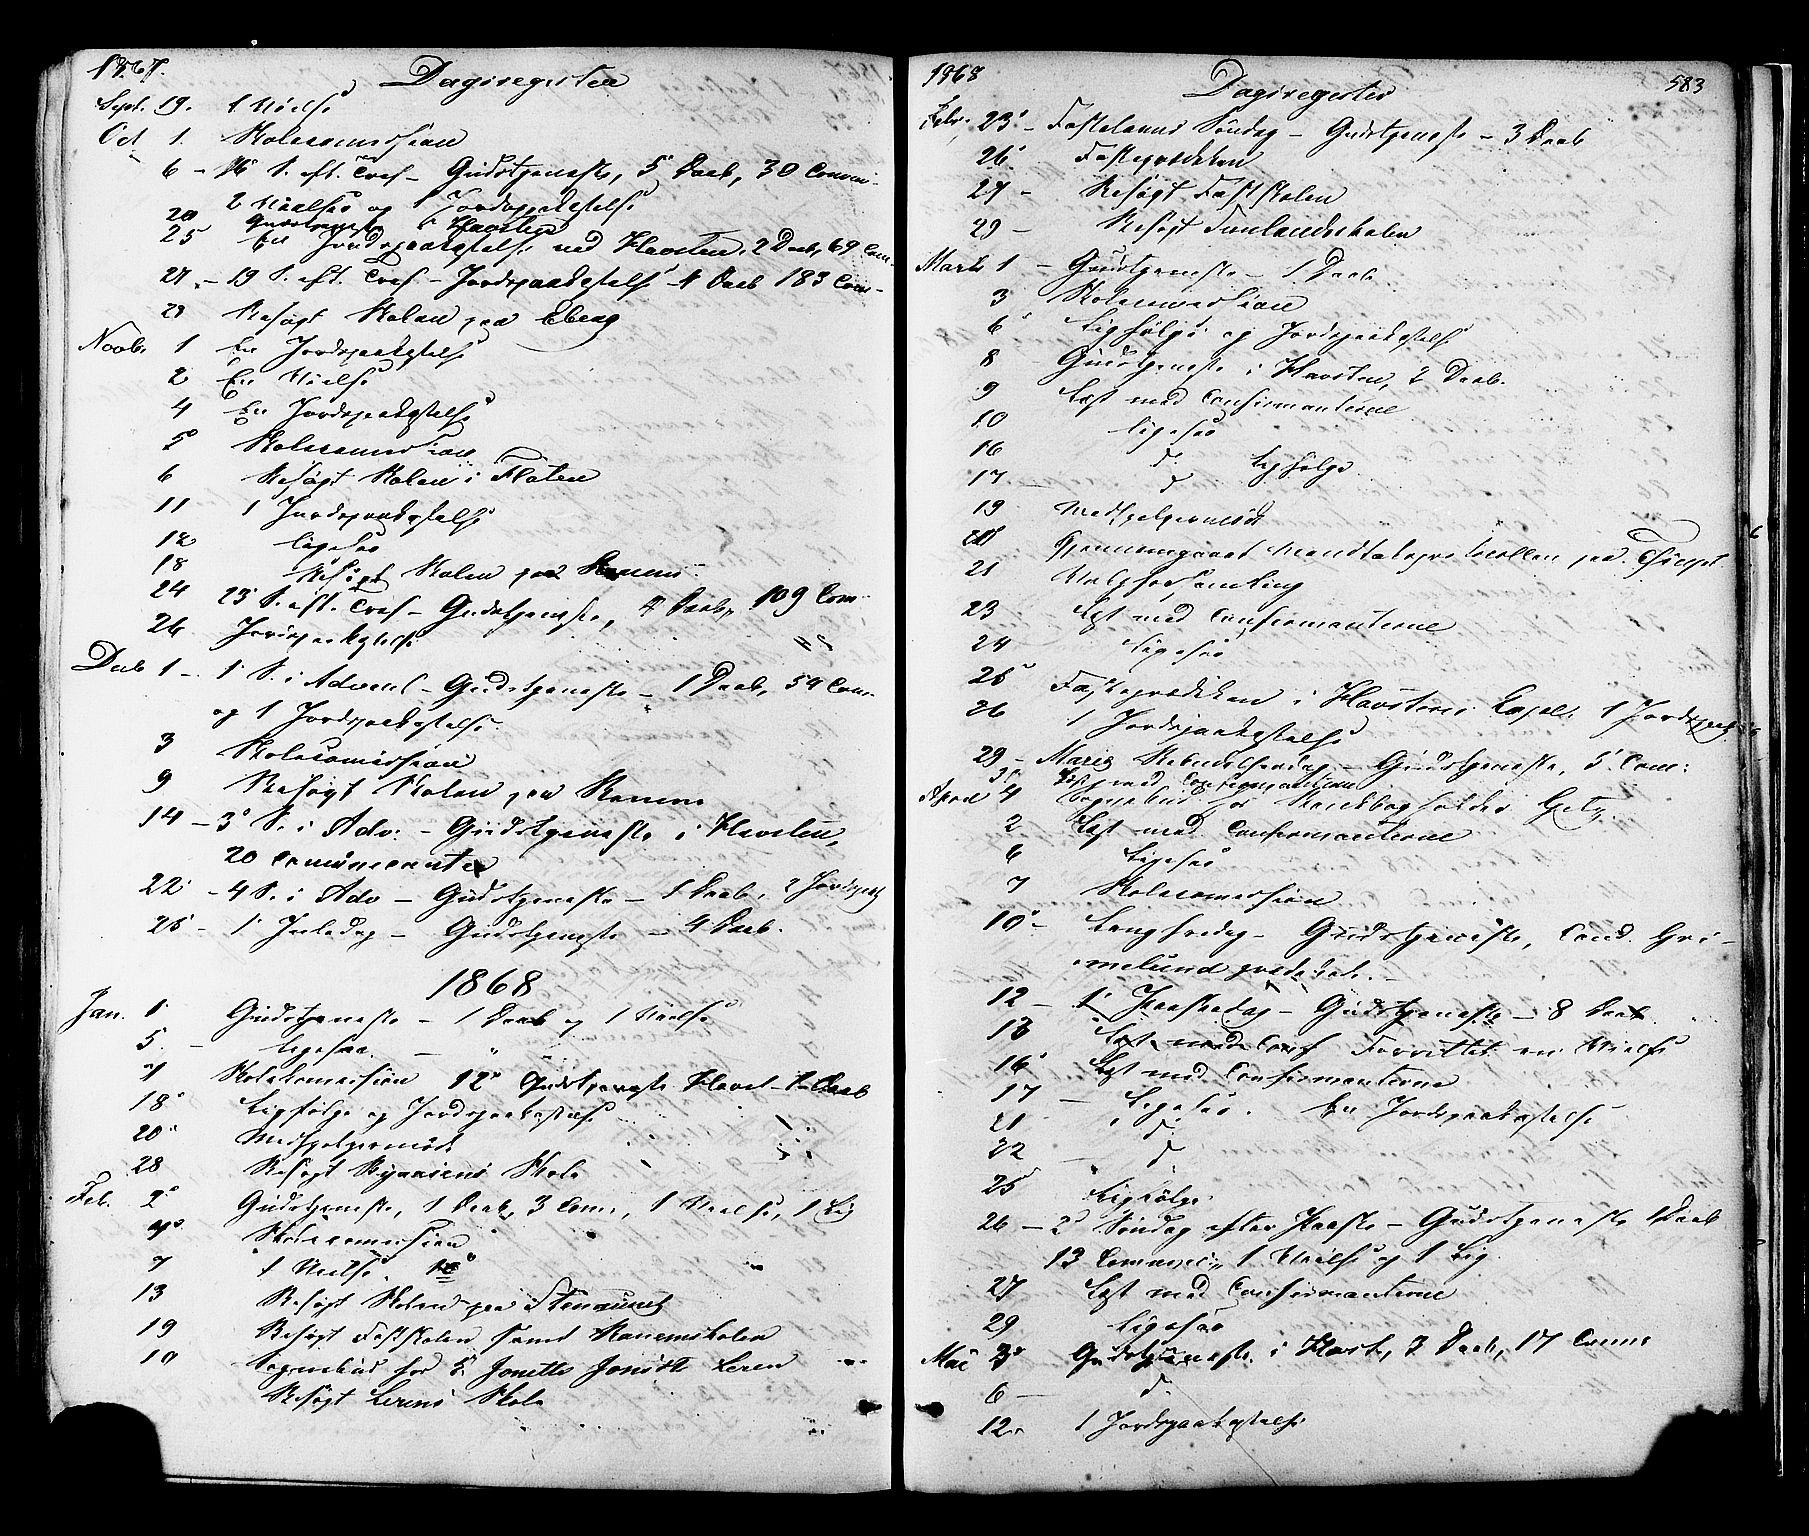 1867.
Dagsregister
Sept. 19. 1 Vielse
Oct 1. Skolecomission
6 - 16 S. eft. Tref - Gudstjeneste, 5 Daab, 30 Commu-
2 Vielser og 1 Jordpaakastelse
20 Gudstjeneste i Havsten
25 En Jordspaakastelse ved Havsten, 2 Daab, 69 Com-
27 - 19 S. eft. Tref - Jordspaakastelse - 4 Daab 183 Com-
29 Besøgt Skolen paa Eberg
Novb. 1 En Jordspaakastelse
2 En Vielse
4 En Jordspaakastelse
5 Skolecomission
6 Besøgt Skolen i Flaten
11 1 Jordspaakastelse
12 ligesaa
18 Besøgt Skolen paa
24 23 S. eft. Tref - Gudstjeneste, 4 Daab, 109 Com-
26 Jordspaakastelse
Decb 1 - 1 S. i Advent - Gudstjeneste - 1 Daab, 54 Com-
og 1 Jordspaakastelse.
3 Skolecomission
9 Besøgt Skolen paa
14 - 3 S. i Adv: - Gudstjeneste i Havsten,
20 Communicanter
22 - 4 S. i Adv - Gudstjeneste - 1 Daab, 2 Jordspaak
25 - 1 Juledag - Gudstjeneste - 4 Daab.
1868
Jan. 1 Gudstjeneste - 1 Daab og 1 Vielse
5. - ligesaa. - "
7 Skolekomission 12 Gudstjeneste Havst - 1 Daab
18 Ligfølge og Jordspaakastelse
20 Medhjelpermøde
28 Besøgt Skole
Feb. 2 Gudstjeneste, 1 Daab, 3 Com., 1 Vielse, 1 Lig
4 Skolecomission
7 1 Vielse.
13 Besøgt Skolen paa
19 Besøgt Fastskolen samt
19 Sognebud for Jonette
Besøgt Lerens Skole
1868
Dagsregister
583
Febr. 23 - Fastelavns Søndag - Gudstjeneste - 3 Daab
26 Fasteprædiken
27 - Besøgt Fastskolen
29 - Besøgt
Marts 1 - Gudstjeneste - 1 Daab
3 Skolecomission
6 Ligfølge og Jordspaakastelse
8 Gudstjeneste i Havsten, 2 Daab.
9 Læst med Confirmanterne
10 ligesaa
16 d
17 - d Ligfølge
19 Medhjelpermøde
20 Gjennemgaaet Mandtalsprotocollen paa
21 Valgforsamling
23 Læst med Confirmanterne
24 Ligesaa
25 Fasteprædiken i Havstens Capel. 1 Jordspaak
26 1 Jordspaakastelse
29 - Mariæ Bebudelsesdag - Gudstjeneste, 5 Com:
31 Læst med Confirmanterne
April 1 Sognebud for
2 Læst med Confirmanterne
6 Ligesaa
7 Skolecomission
10 - Langfredag - Gudstjeneste, Cand. Gri-
melund prædikede. -
12 - 1 Paaskedag - Gudstjeneste - 8 Daab.
13 Læst med Conf Forrettet en Vielse
16 Læst med Confirmanterne
17 - Ligesaa. En Jordspaakastelse
21 d
22 - d
25 Ligfølge
26 - 2 Søndag efter Paaske - Gudstjeneste 1 Daab
13 Commun., 1 Vielse og 1 Lig
27 Læst med Confirmanterne
29 Ligesaa
Mai 3 Gudstjeneste i Havst, 7 Daab, 17 Comm
6 - d.
12. 1 Jordspaakastelse